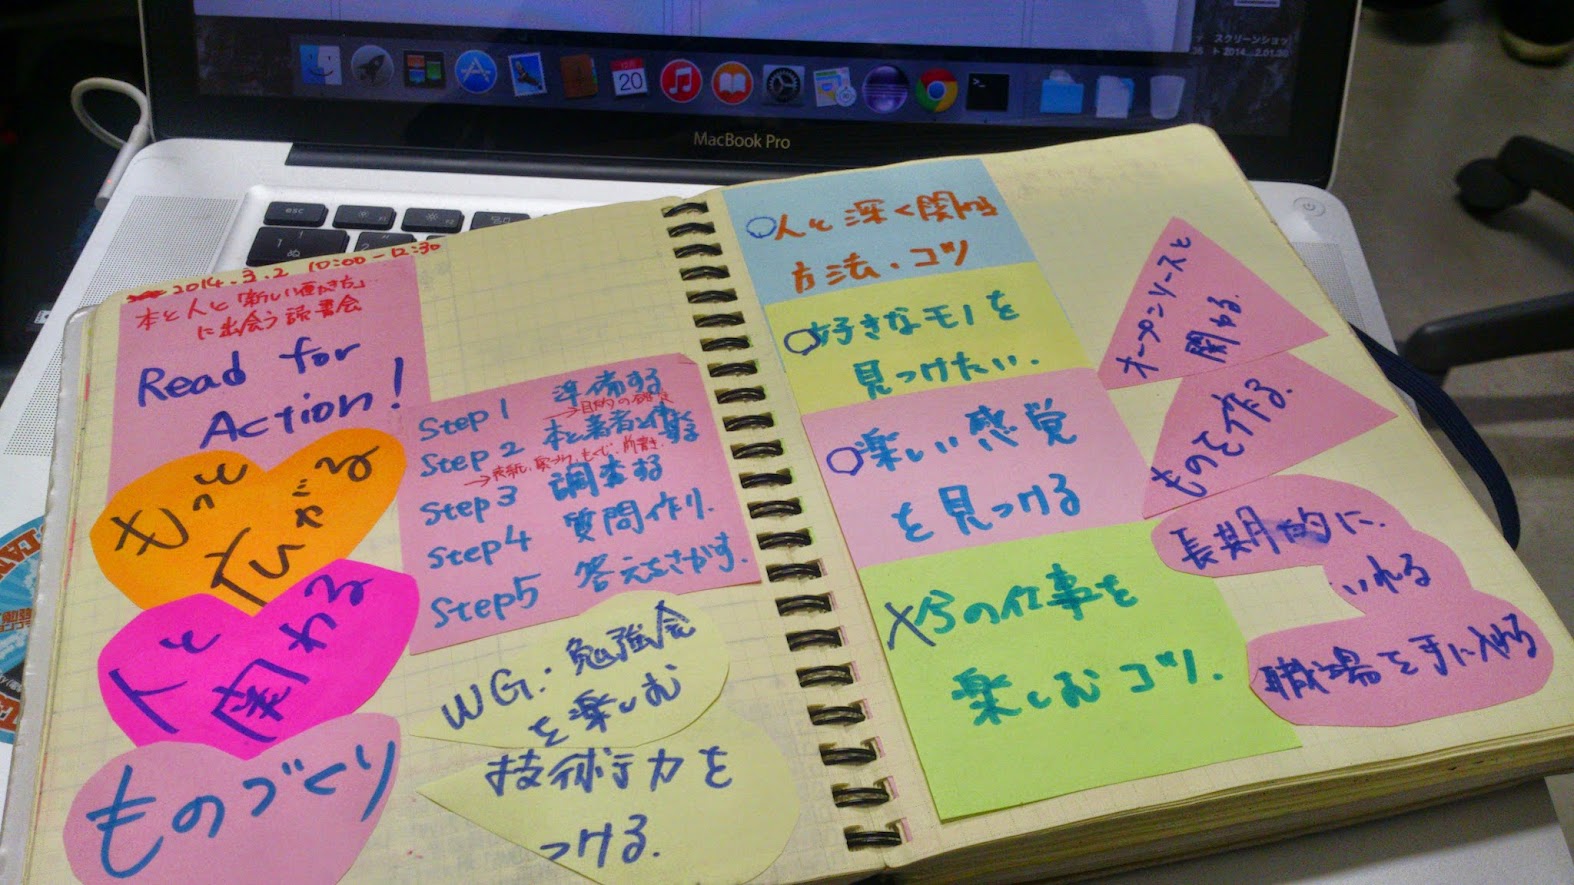 スクリーンショッ
ト 2014...2.01.30
20
MacBook Pro
esc
2014.3.2 10:00-12:30
本と人と「新しい働き方」
に出会う読書会
Read for
Action!
もっと
広がる
人と
関わる
ものづくり
Step 1 準備する
→目的の確定
Step 2 本と著者と仲良くなる
→表紙、奥づけ、もくじ、肩書き
Step 3 調査する
Step4 質問作り.
Step5 答えをさがす.
WG:勉強会
を楽しむ
技術力を
つける.
○人と深く関わる
方法・コツ
○好きなモノを
見つけたい.
○楽しい感覚
を見つける
×今の仕事を
楽しむコツ.
オープンソースと
関わる.
ものを作る.
長期的に.
いれる
職場を手に入れる